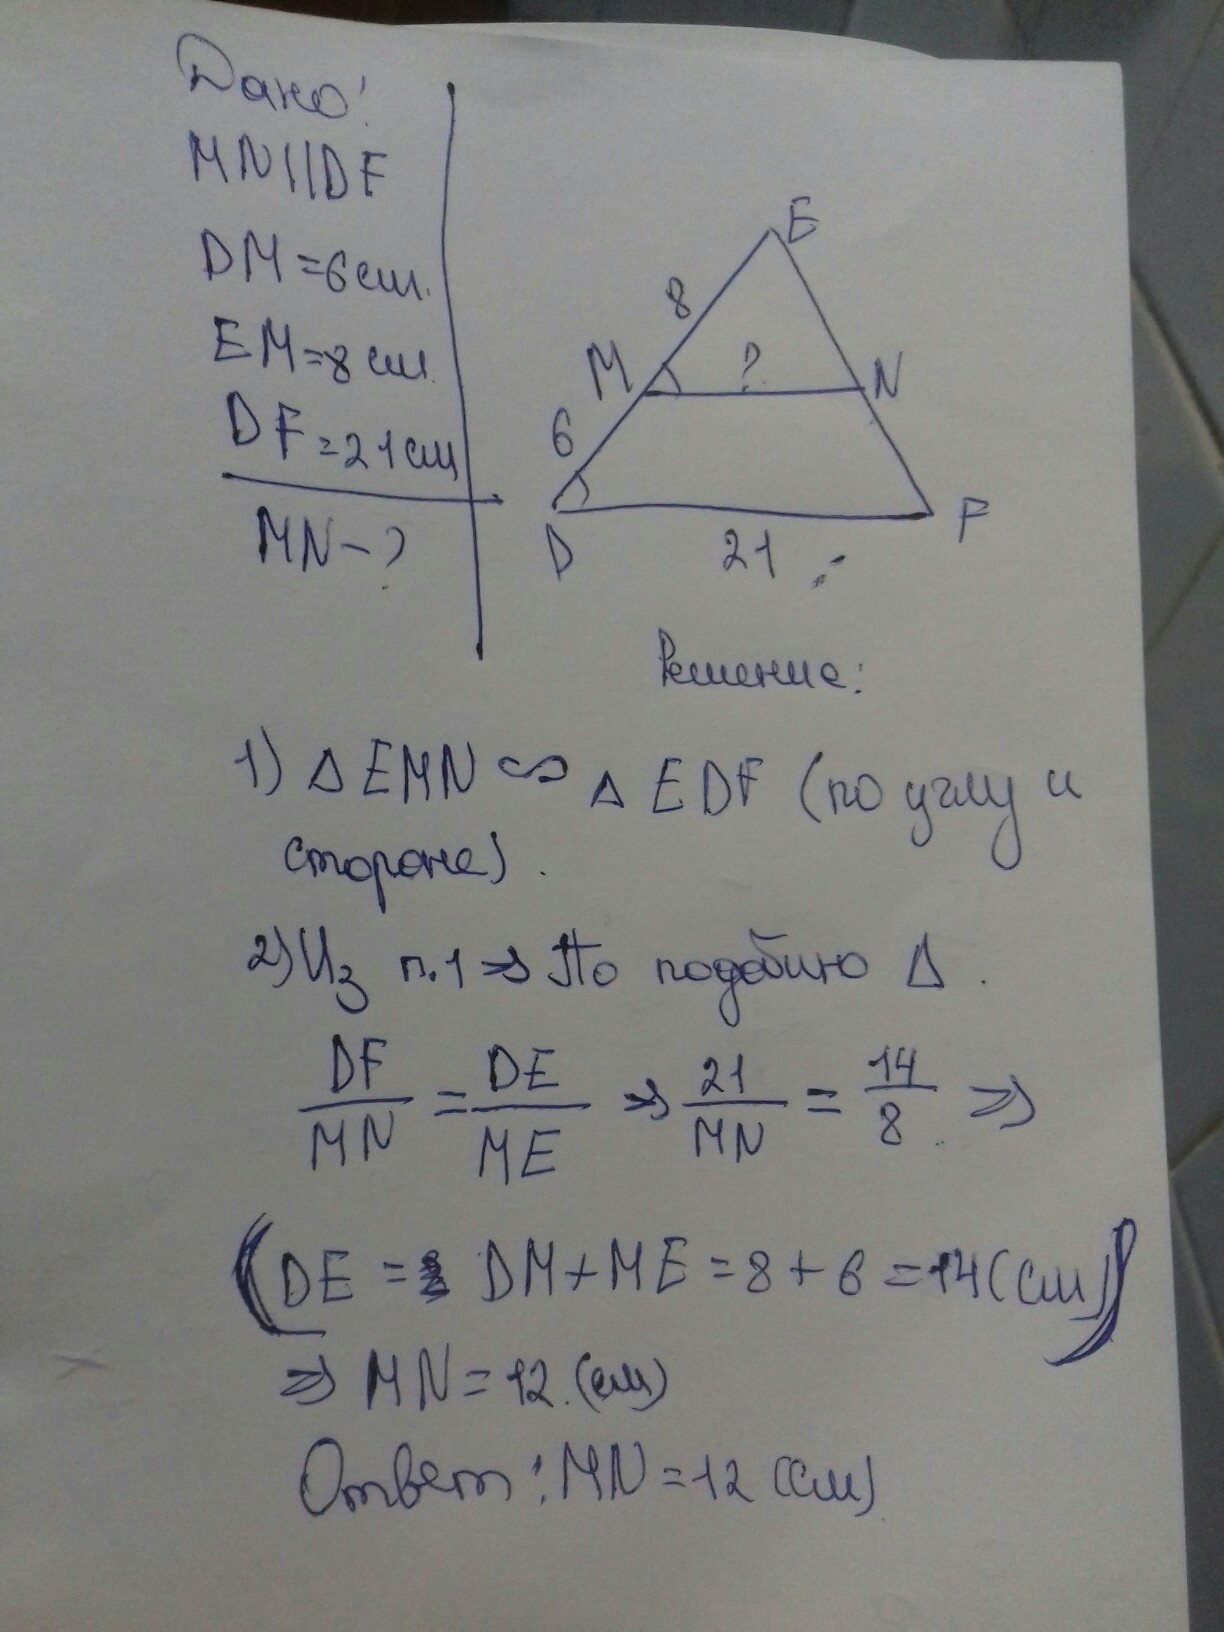 Дано:
MN||DF
DM=6см.
EM=8см.
DF=21см
MN-?
E
8
M ? N
6
D F
21
Решение:
1) Δ EMN ∽ Δ EDF (по углу и
стороне).
2) Из п.1 => По подобию Δ.
DF/MN = DE/ME => 21/MN = 14/8 =>
(DE = DM+ME=8+6=14(см))
=> MN=12.(см)
Ответ: MN=12(см)